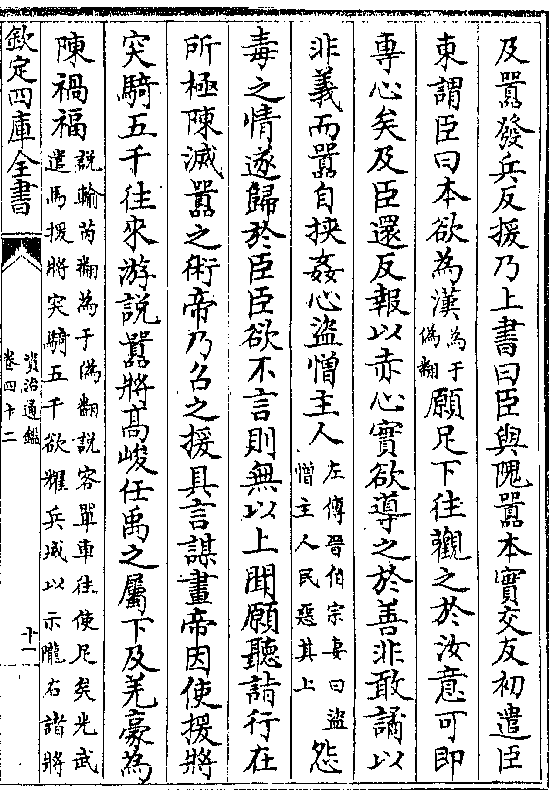 及囂發兵反援乃上書曰臣與隗囂本實交友初遣臣
東謂臣曰本欲為漢為于偽翻願足下往觀之於汝意可即
專心矣及臣還反報以赤心實欲導之於善非敢譎以
非義而囂自挾姦心盜憎主人左傳晉伯宗妻曰盜憎主人民惡其上怨
毒之情遂歸於臣臣欲不言則無以上聞願聽詣行在
所極陳滅囂之術帝乃召之援具言謀畫帝因使援將
突騎五千往來游說囂將高峻任禹之屬下及羌豪為
陳禍福說輸芮翻為于偽翻說客單車往使足矣光武遣馬援將突騎五千欲耀兵威以示隴右諸將
欽定四庫全書
資治通鑑
卷四十二
十一